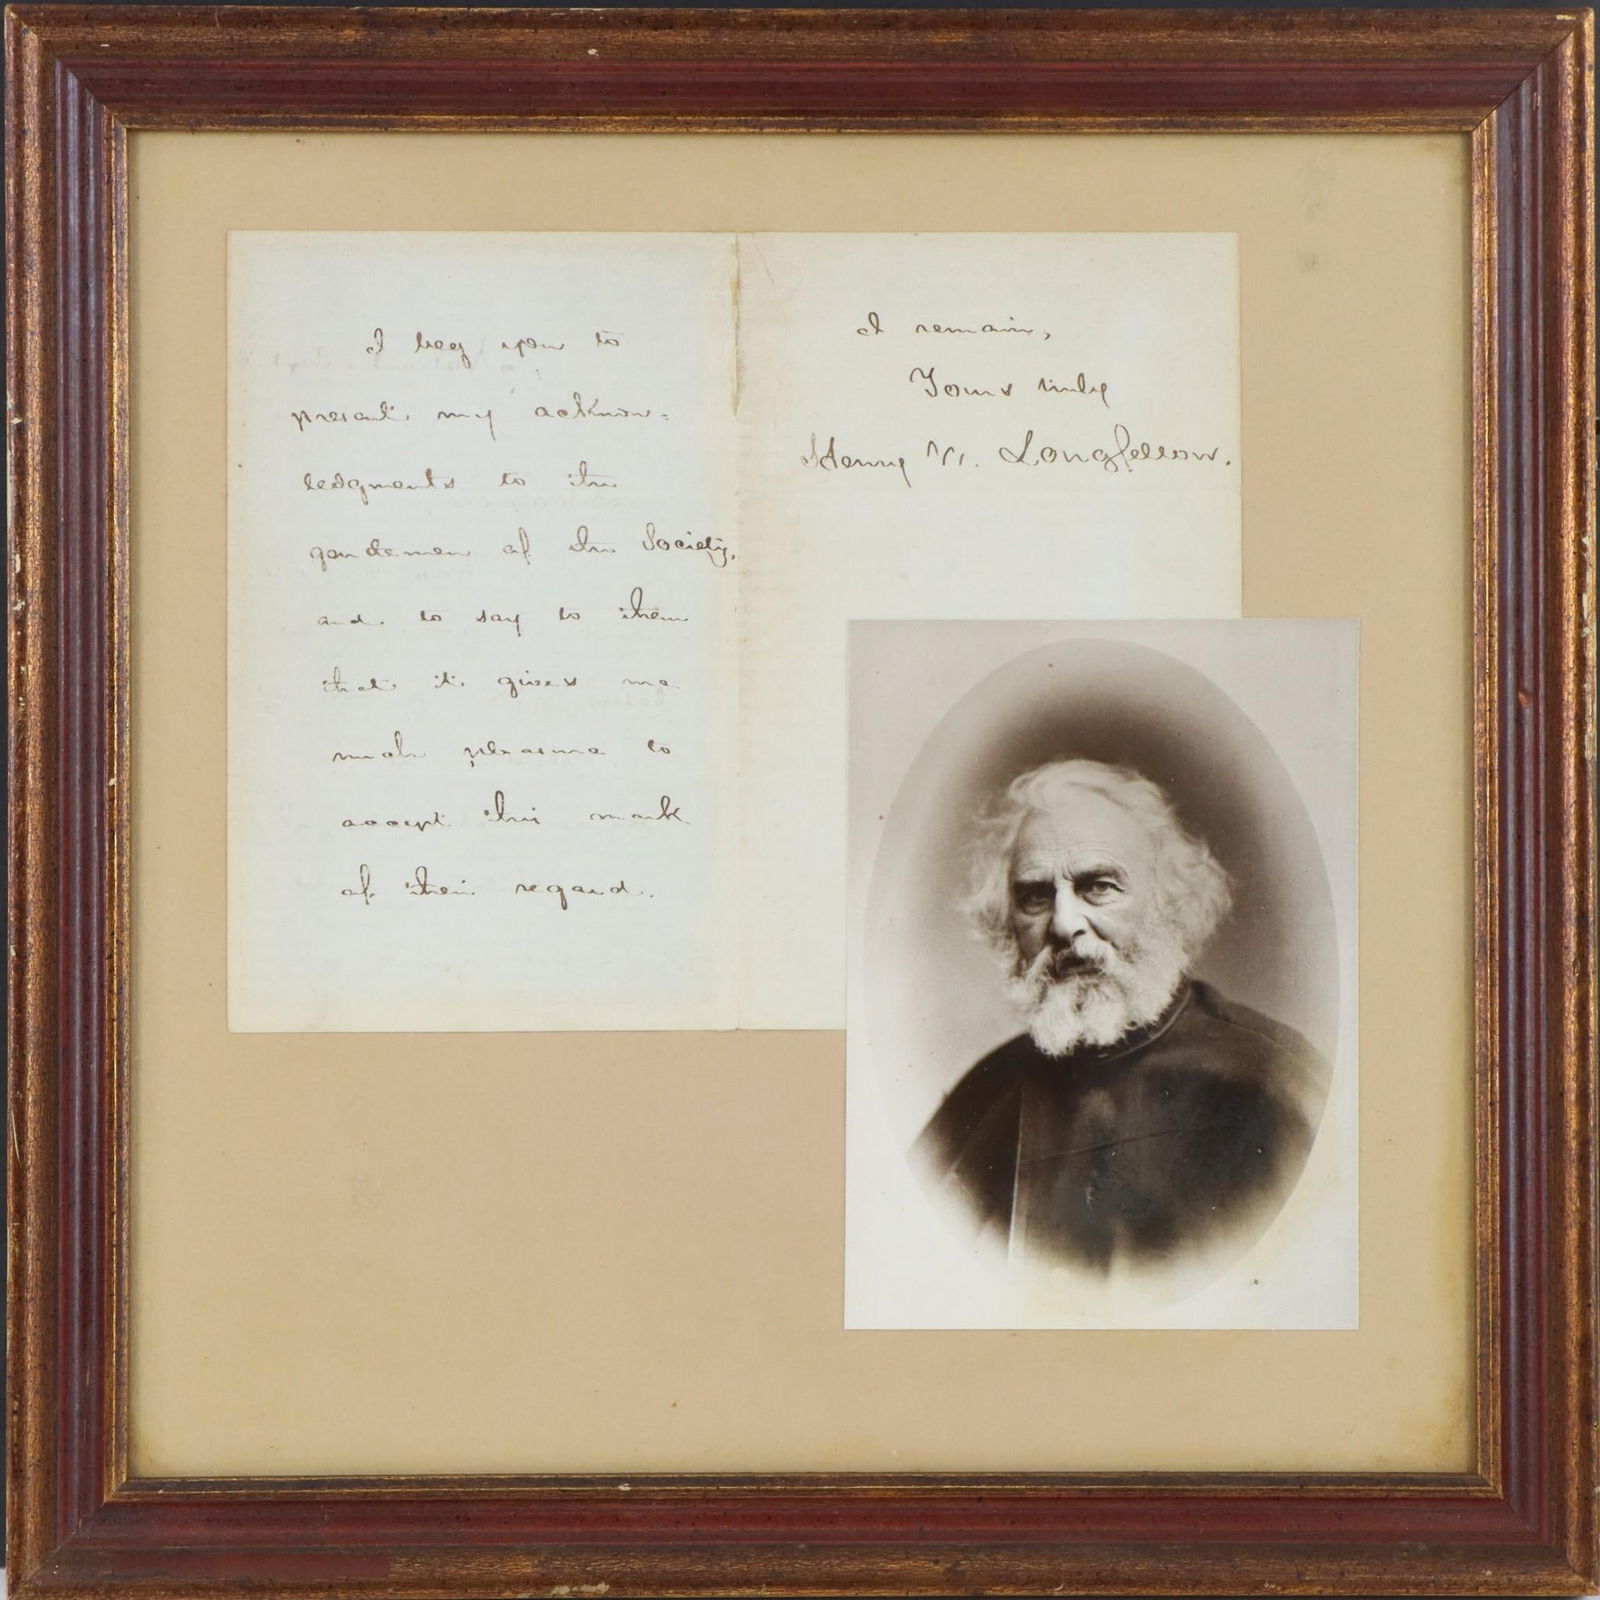 I beg you to
present my acknow=
ledgments to the
gentlemen of the Society,
and to say to them
that it gives me
much pleasure to
accept this mark
of their regard.
I remain,
Yours truly
Henry W. Longfellow.